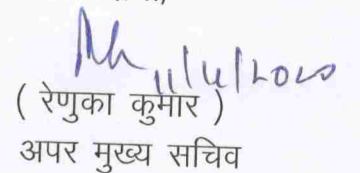 11/4/2020
( रेणुका कुमार )
अपर मुख्य सचिव